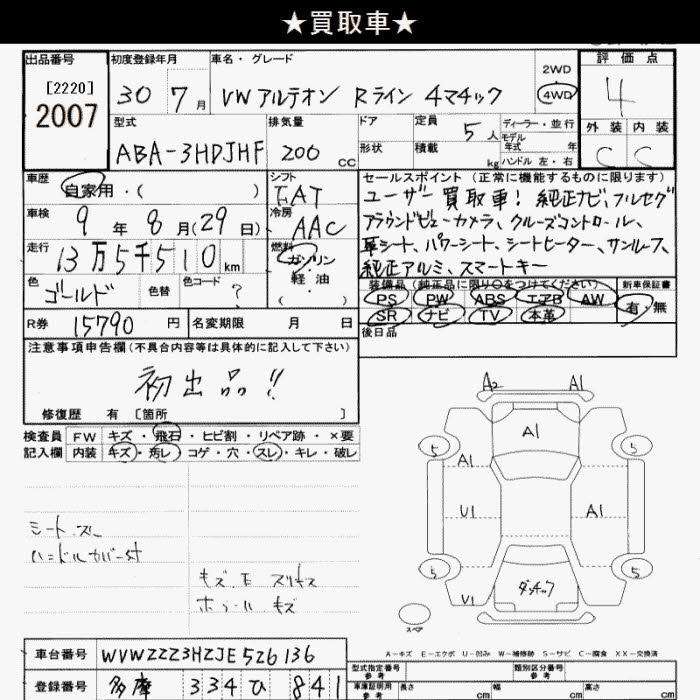 ★買取車★
出品番号
[2220]
2007
初度登録年月
30 7 月
車名・グレード
VW アルテオン Rライン 4マチック
2WD
4WD
評価点
4
外装 内装
C C
型式
ABA-3HDJHF
排気量
200 CC
ドア
形状
定員 5 人
積載 kg
ディーラー・並行
モデル
年式 年
ハンドル 左・右
車歴
自家用・( )
シフト
FAT
車検
9 年 8 月(29 日)
冷房
AAC
走行
13万5千510 km
燃料
ガソリン
軽油
( )
色
ゴールド
色替
色コード
?
R券 15790 円
名変期限 月 日
セールスポイント(正常に機能するものに限ります)
ユーザー買取車! 純正ナビ、フルセグ
アラウンドビューカメラ、クルーズコントロール、
革シート、パワーシート、シートヒーター、サンルーフ、
純正アルミ、スマートキー
装備品(純正品に限り○をつけてください)
PS PW ABS エアB AW
SR ナビ TV 本革
新車保証書
有・無
後日品
注意事項申告欄(不具合内容等は具体的に記入して下さい)
初出品!!
修復歴 有 〔箇所 〕
検査員
記入欄
FW キズ・飛石・ヒビ割・リペア跡・×要
内装 キズ・汚レ・コゲ・穴・スレ・キレ・破レ
シート スレ
ハンドルカバー付
キズ、E スリキズ
ホイールキズ
A2 A1
A1
5 5
A1
U1 A1
5 5
V1
ダッチック
スペア
A-キズ E-エクボ U-凹み W-補修跡 S-サビ C-腐食 XX-交換済
車台番号 WVWZZZ3HZJE526136
登録番号 多摩 334 ひ 841
型式指定番号
参考
類別区分番号
参考
車庫証明用
参考
長さ cm 幅 cm 高さ cm